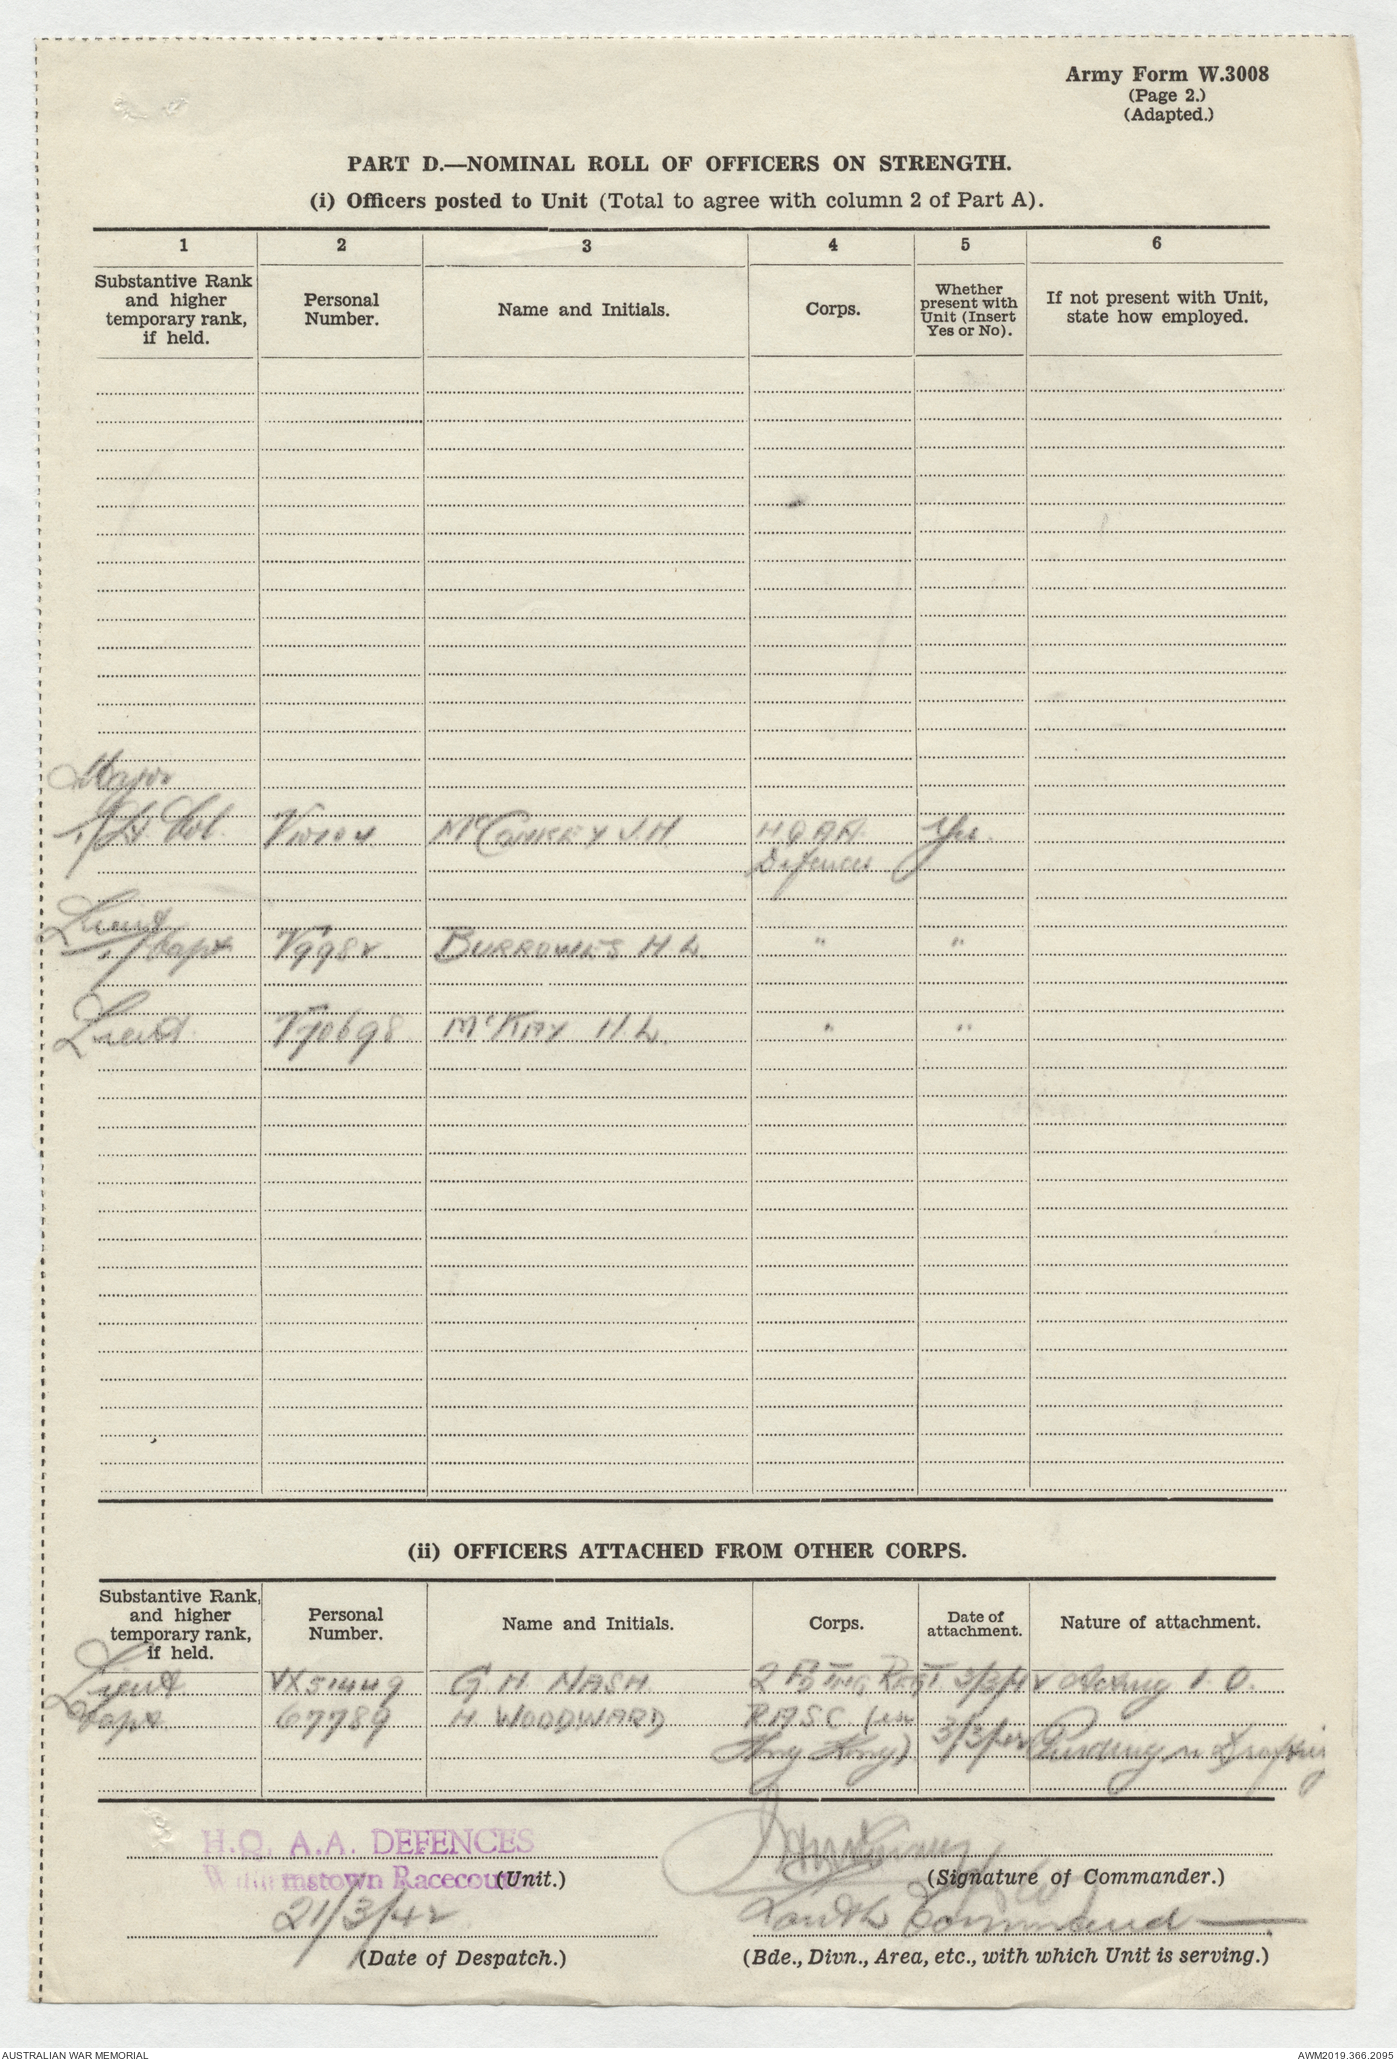 Army Form W.3008
(Page 2.)
(Adapted.)
PART D.—NOMINAL ROLL OF OFFICERS ON STRENGTH.
(i) Officers posted to Unit (Total to agree with column 2 of Part A).
1 2 3 4 5 6
Substantive Rank and higher temporary rank, if held. Personal Number. Name and Initials. Corps. Whether present with Unit (Insert Yes or No). If not present with Unit, state how employed.
Major
T/Lt Col. McConkey J.H. H.Q. A.A. Yes.
Defences
Lieut
T/Capt BURROWES H.L. " "
Lieut V70698 McKAY H.L. " "
(ii) OFFICERS ATTACHED FROM OTHER CORPS.
Substantive Rank, and higher temporary rank, if held. Personal Number. Name and Initials. Corps. Date of attachment. Nature of attachment.
Lieut VX51449 G H NASH 2 REGT. 3/3/42 Acting I.O.
Capt 67789 H WOODWARD RASC (
Hong Kong) 3/3/42
H.Q. A.A. DEFENCES
Williamstown Racecourse
(Unit.) (Signature of Commander.)
21/3/42 South Command
(Date of Despatch.) (Bde., Divn., Area, etc., with which Unit is serving.)
AUSTRALIAN WAR MEMORIAL AWM2019.366.2095